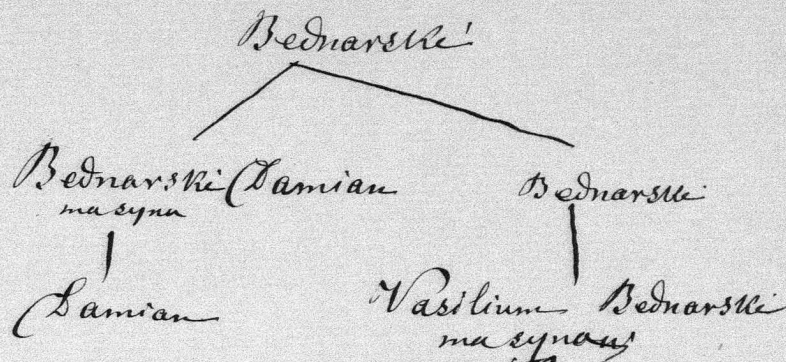 Bednarski
Bednarski Damian Bednarski
ma syna
Damian Vasilium Bednarski
ma synów